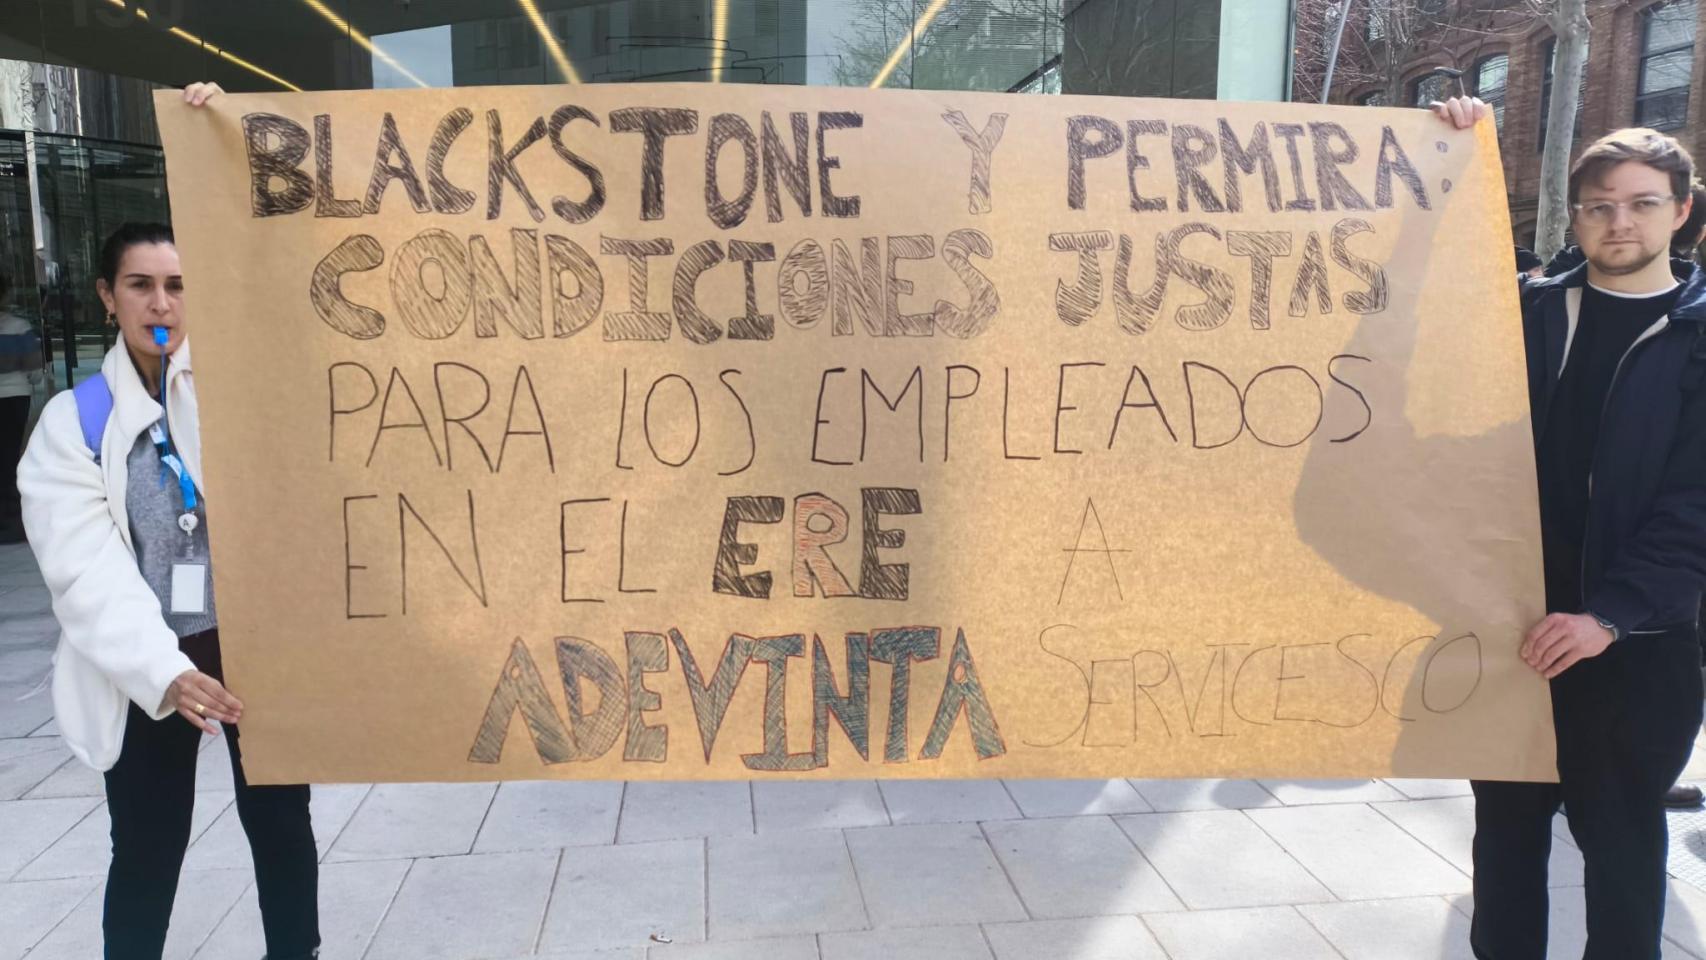 130
BLACKSTONE Y PERMIRA:
CONDICIONES JUSTAS
PARA LOS EMPLEADOS
EN EL ERE A
ADEVINTA SERVICESCO
A